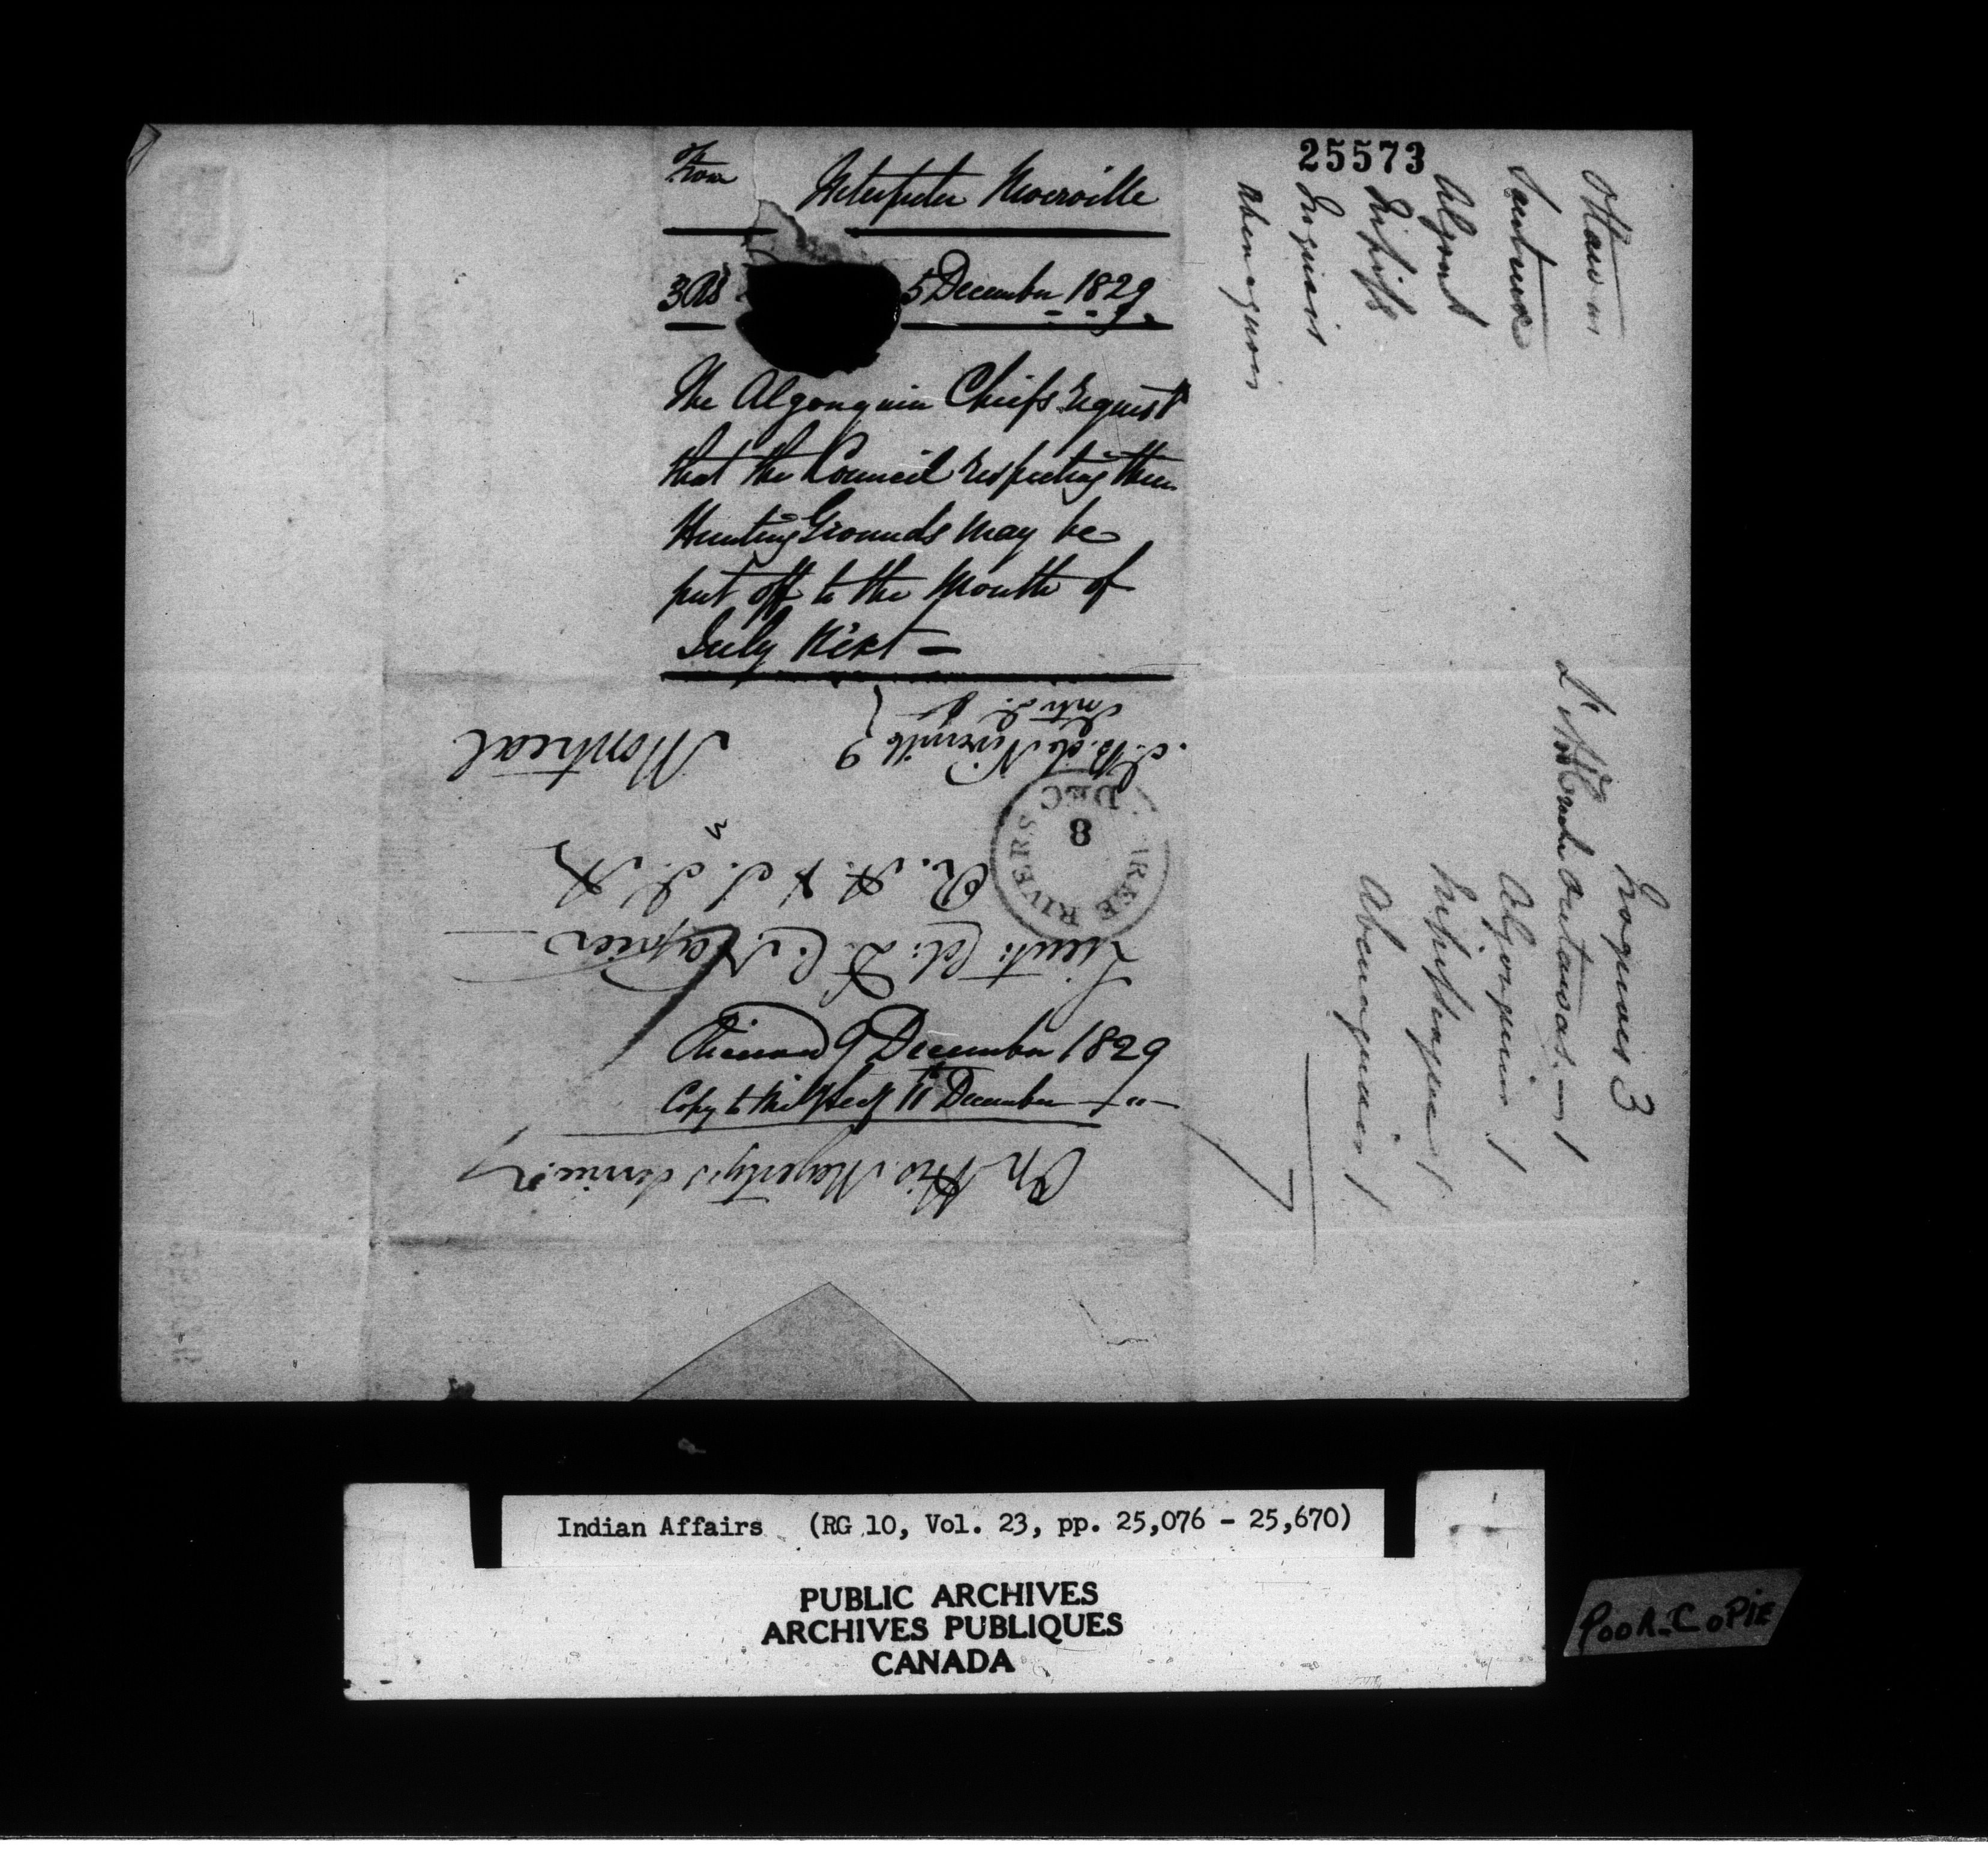 25573
From
Interpreter Niverville
3 Rs 5 December 1829
The Algonquin Chiefs request
that the Council respecting their
Hunting Grounds may be
put off to the Month of
July Next =
On His Majesty's Service
Lieut: Col: D. C. Napier
Montreal
J. B. de Niverville
THREE RIVERS
8
DEC
Received 9 December 1829
Copy to Mil Secy 11th December
Ottawas
Algonk
Nipiss
Iroquois
Abenaquois
Iroquois 3
Outawas 1
Algonquin 1
Nipissingue 1
Abenaquois 1
Indian Affairs (RG 10, Vol. 23, pp. 25,076 - 25,670)
PUBLIC ARCHIVES
ARCHIVES PUBLIQUES
CANADA
POOR-COPIE